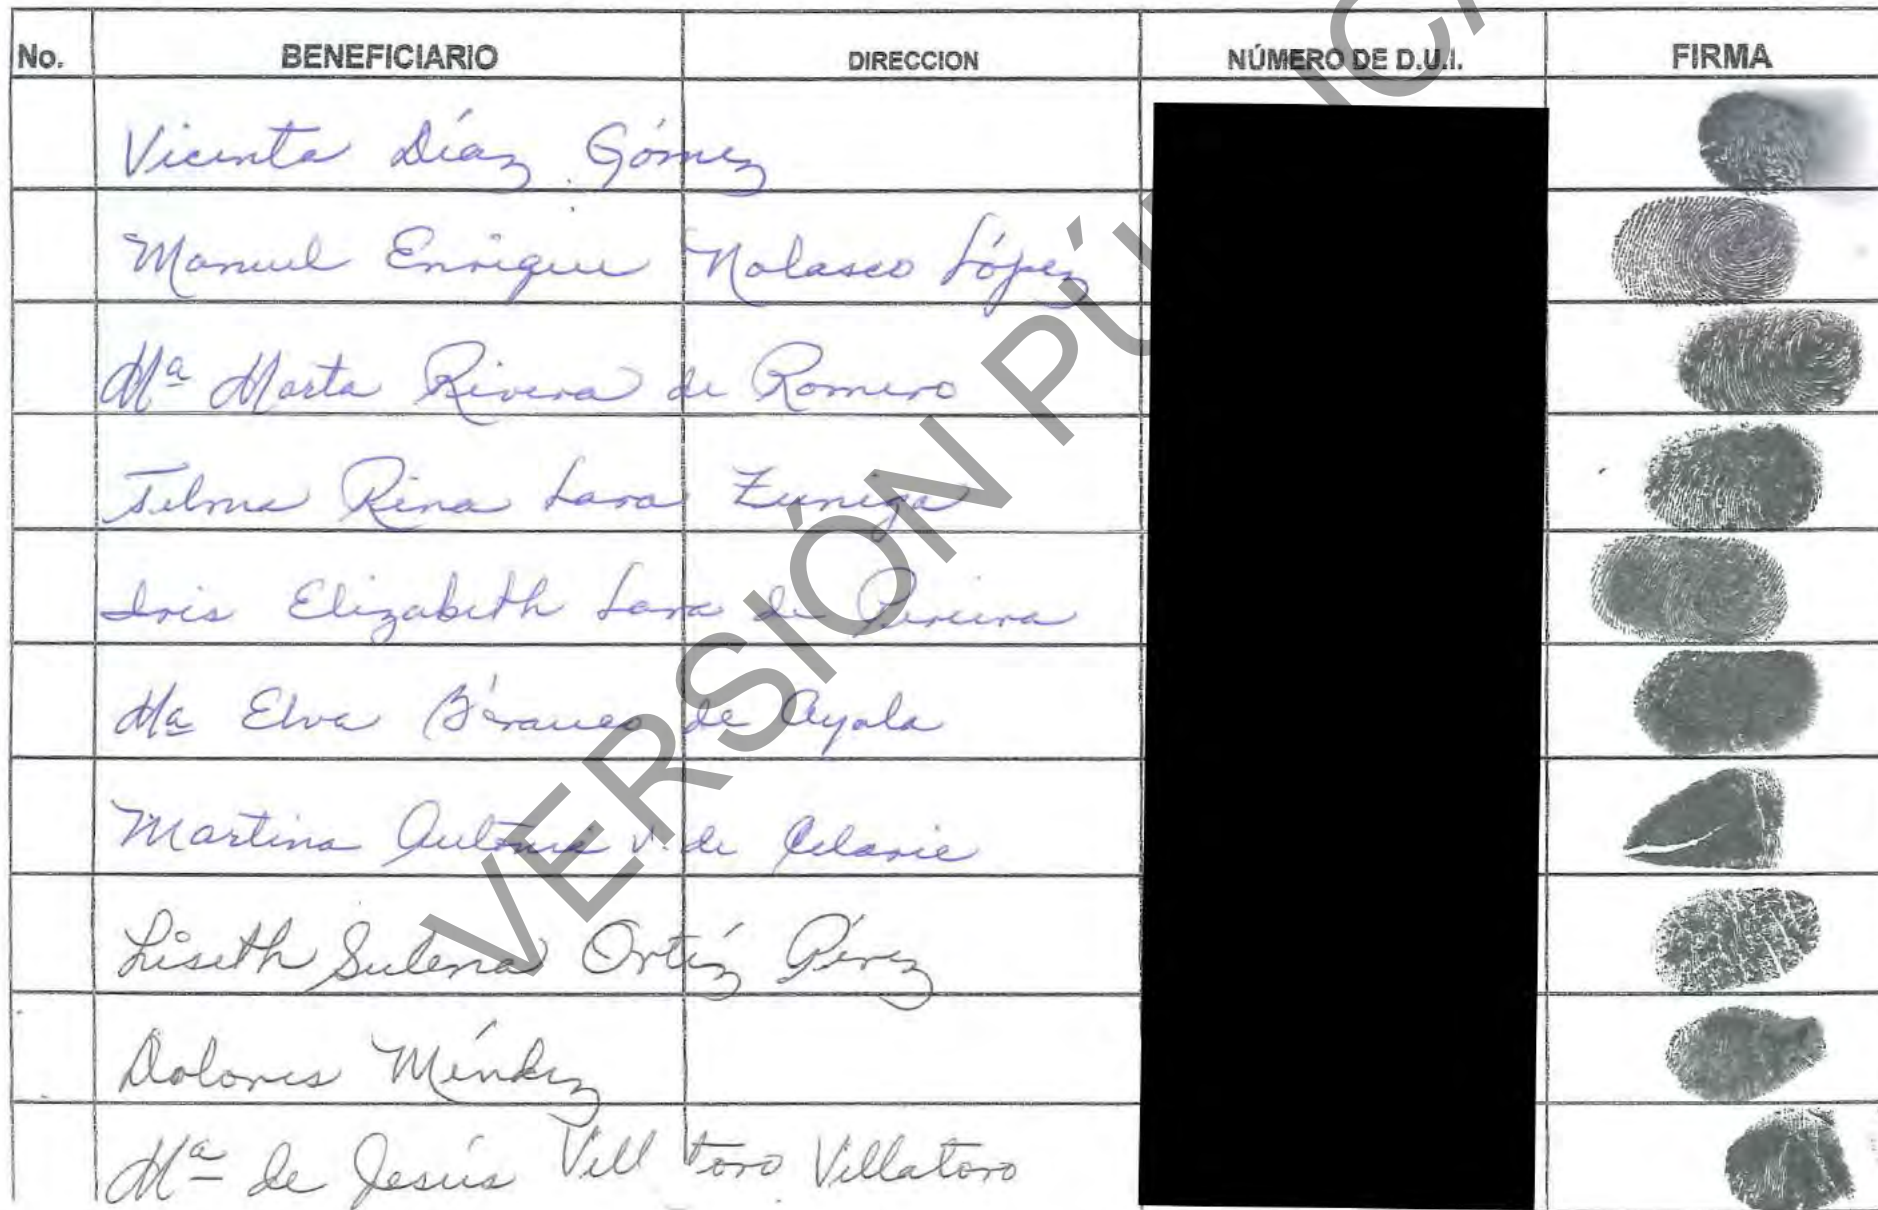 No. BENEFICIARIO DIRECCION NÚMERO DE D.U.I. FIRMA
Vicenta Díaz Gómez
Manuel Enrique Nolasco López
Mª Marta Rivera de Romero
Telma Rina Lara Zuniga
Iris Elizabeth Lara de Pereira
Mª Elva de Ayala
Martina Antonia v. de Celarie
Liseth Sulena Ortíz Pérez
Dolores Méndez
Mª de Jesús Vill toro Villatoro
VERSIÓN PÚ ICA